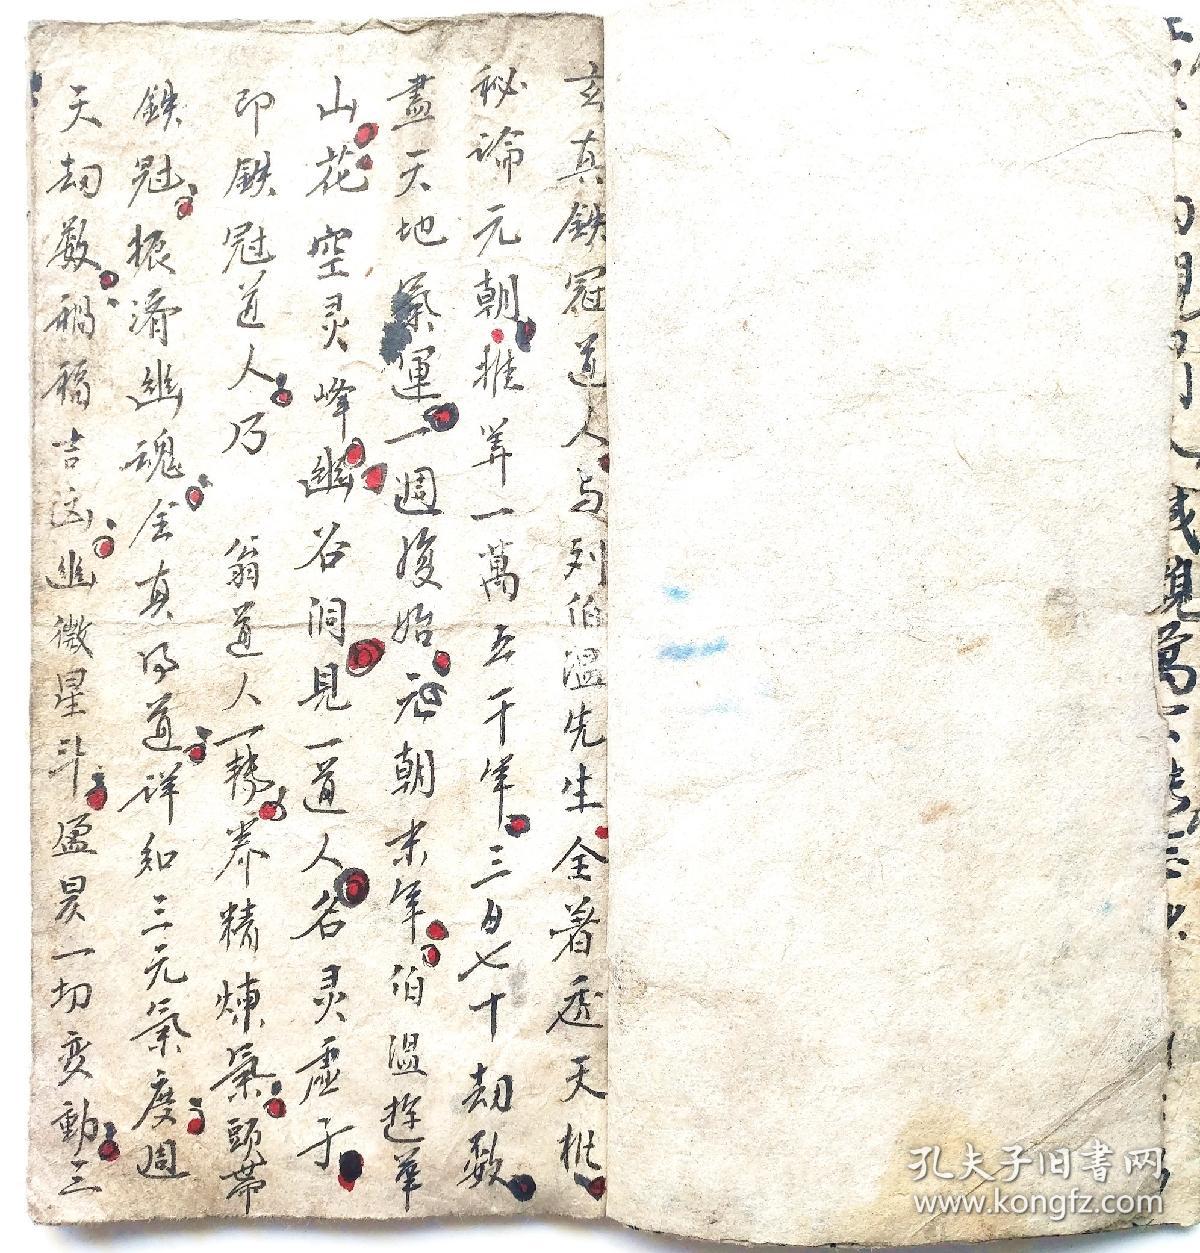 玄真鉄冠道人与刘伯溫先生全著透天机
秘論元朝推筭一萬五千年三百七十刼数
盡天地氣運一週復始元朝末年伯溫遊華
山花空灵峰幽谷洞見一道人名灵虚子
即鉄冠道人乃 翁道人養精煉氣頭帶
鉄冠振濟幽魂全真得道詳知三元氣度週
天刼数禍福吉凶幽微星斗盈昃一切变動三
孔夫子旧書网
www.kongfz.com